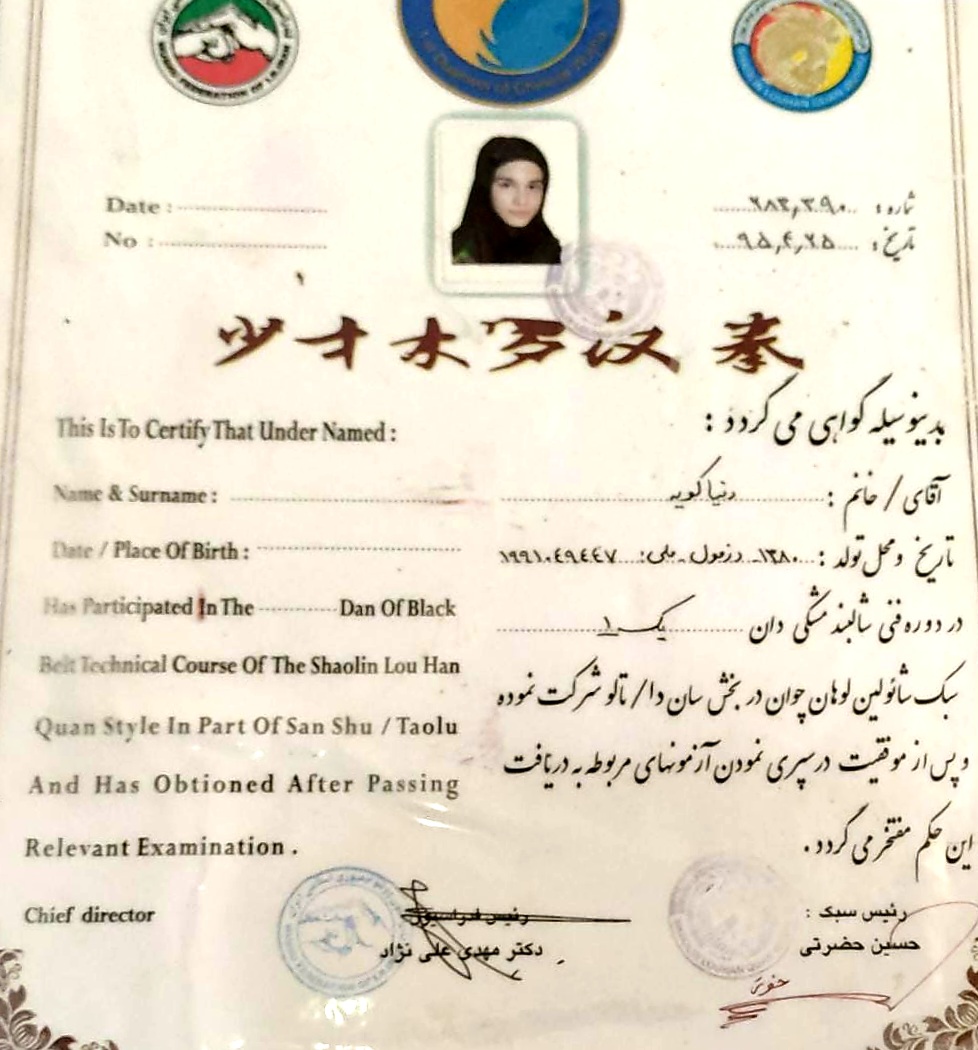 WUSHU FEDERATION OF I.R.IRAN
Date :
شماره : ۲۸۳,۳۹۰
No :
تاریخ : ۹۵,۴,۲۵
少林罗汉拳
This Is To Certify That Under Named :
بدینوسیله گواهی می گردد :
Name & Surname :
آقای / خانم : دنیا کویه
Date / Place Of Birth :
تاریخ و محل تولد : ۱۳۸۰ـ دزفول ـ ملی: ۱۹۹۱۰۴۹۴۴۷
Has Participated In The Dan Of Black
در دوره فنی شالبند مشکی دان یک ۱
Belt Technical Course Of The Shaolin Lou Han
سبک شائولین لوهان چوان در بخش سان دا / تالو شرکت نموده
Quan Style In Part Of San Shu / Taolu
و پس از موفقیت در سپری نمودن آزمونهای مربوطه به دریافت
And Has Obtioned After Passing
این حکم مفتخر می گردد .
Relevant Examination .
Chief director
رئیس فدراسیون
رئیس سبک :
دکتر مهدی علی نژاد
حسین حضرتی